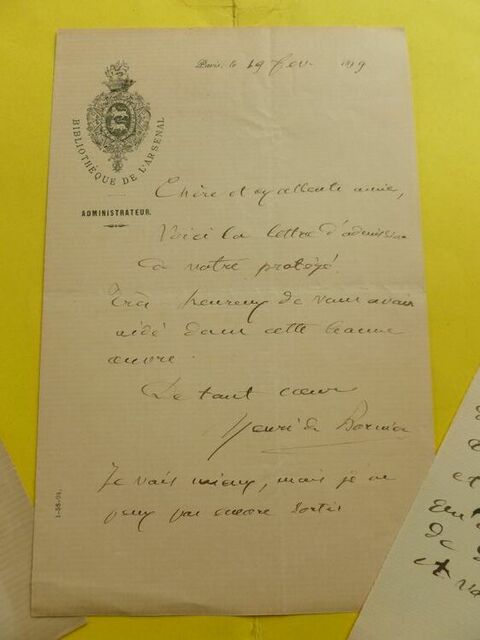 BIBLIOTHÈQUE DE L'ARSENAL
ADMINISTRATEUR.
Paris, le 19 fev
Chère et excellente amie,
Voici la lettre d'admission
de votre protégé.
Très heureux de vous avoir
aidé dans cette bonne
œuvre.
De tout cœur
Henri de Bornier
Je vais mieux, mais je ne
peux pas encore sortir
et
de
et